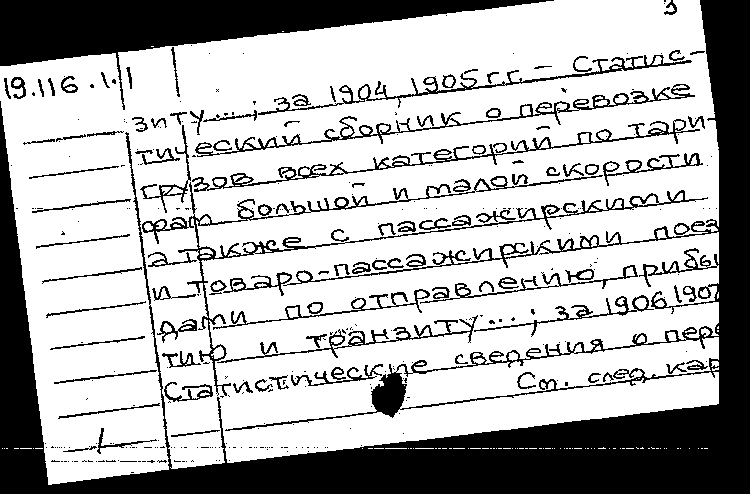 3
19.116.1.1
зиту...; за 1904, 1905 г.г. – Статис-
тический сборник о перевозке
грузов всех категорий по тари-
фам большой и малой скорости
а также с пассажирскими
и товаро-пассажирскими поез
дами по отправлению, прибы
тию и транзиту...; за 1906, 1907
Статистические сведения о пере
См. след. кар